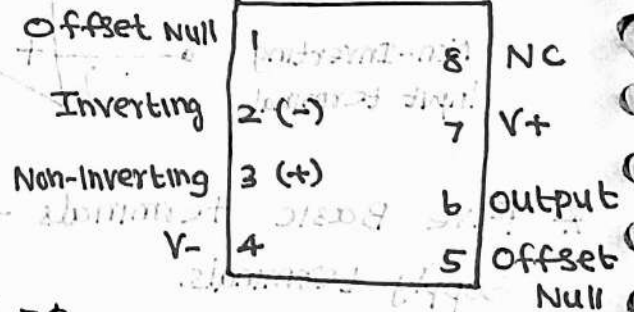 Offset Null 1 8 NC
Inverting 2 (-) 7 V+
Non-Inverting 3 (+) 6 output
V- 4 5 Offset
Null